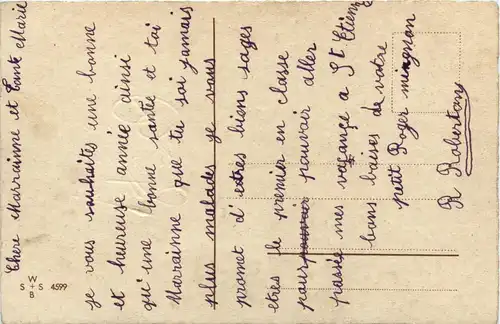 Chere Marrainne et Tante Marie
je vous souhaites une bonne
et heureuse année ainsi
qu'une bonne santée et toi
Marrainne que tu soi jamais
plus malades je vous
promet d'etres biens sages
etres le premier en classe
pour pouvoir pouvoir aller
passée mes vacance a St Etienne
bons baises de votre
petit Roger mignon
R Robertay
W
S + S 4599
B